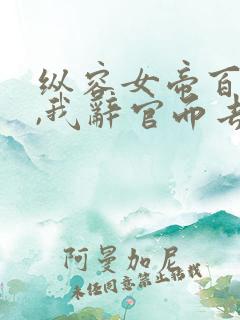 纵容女帝百
,我辞官而去
阿曼加尼
未经同意禁止转载